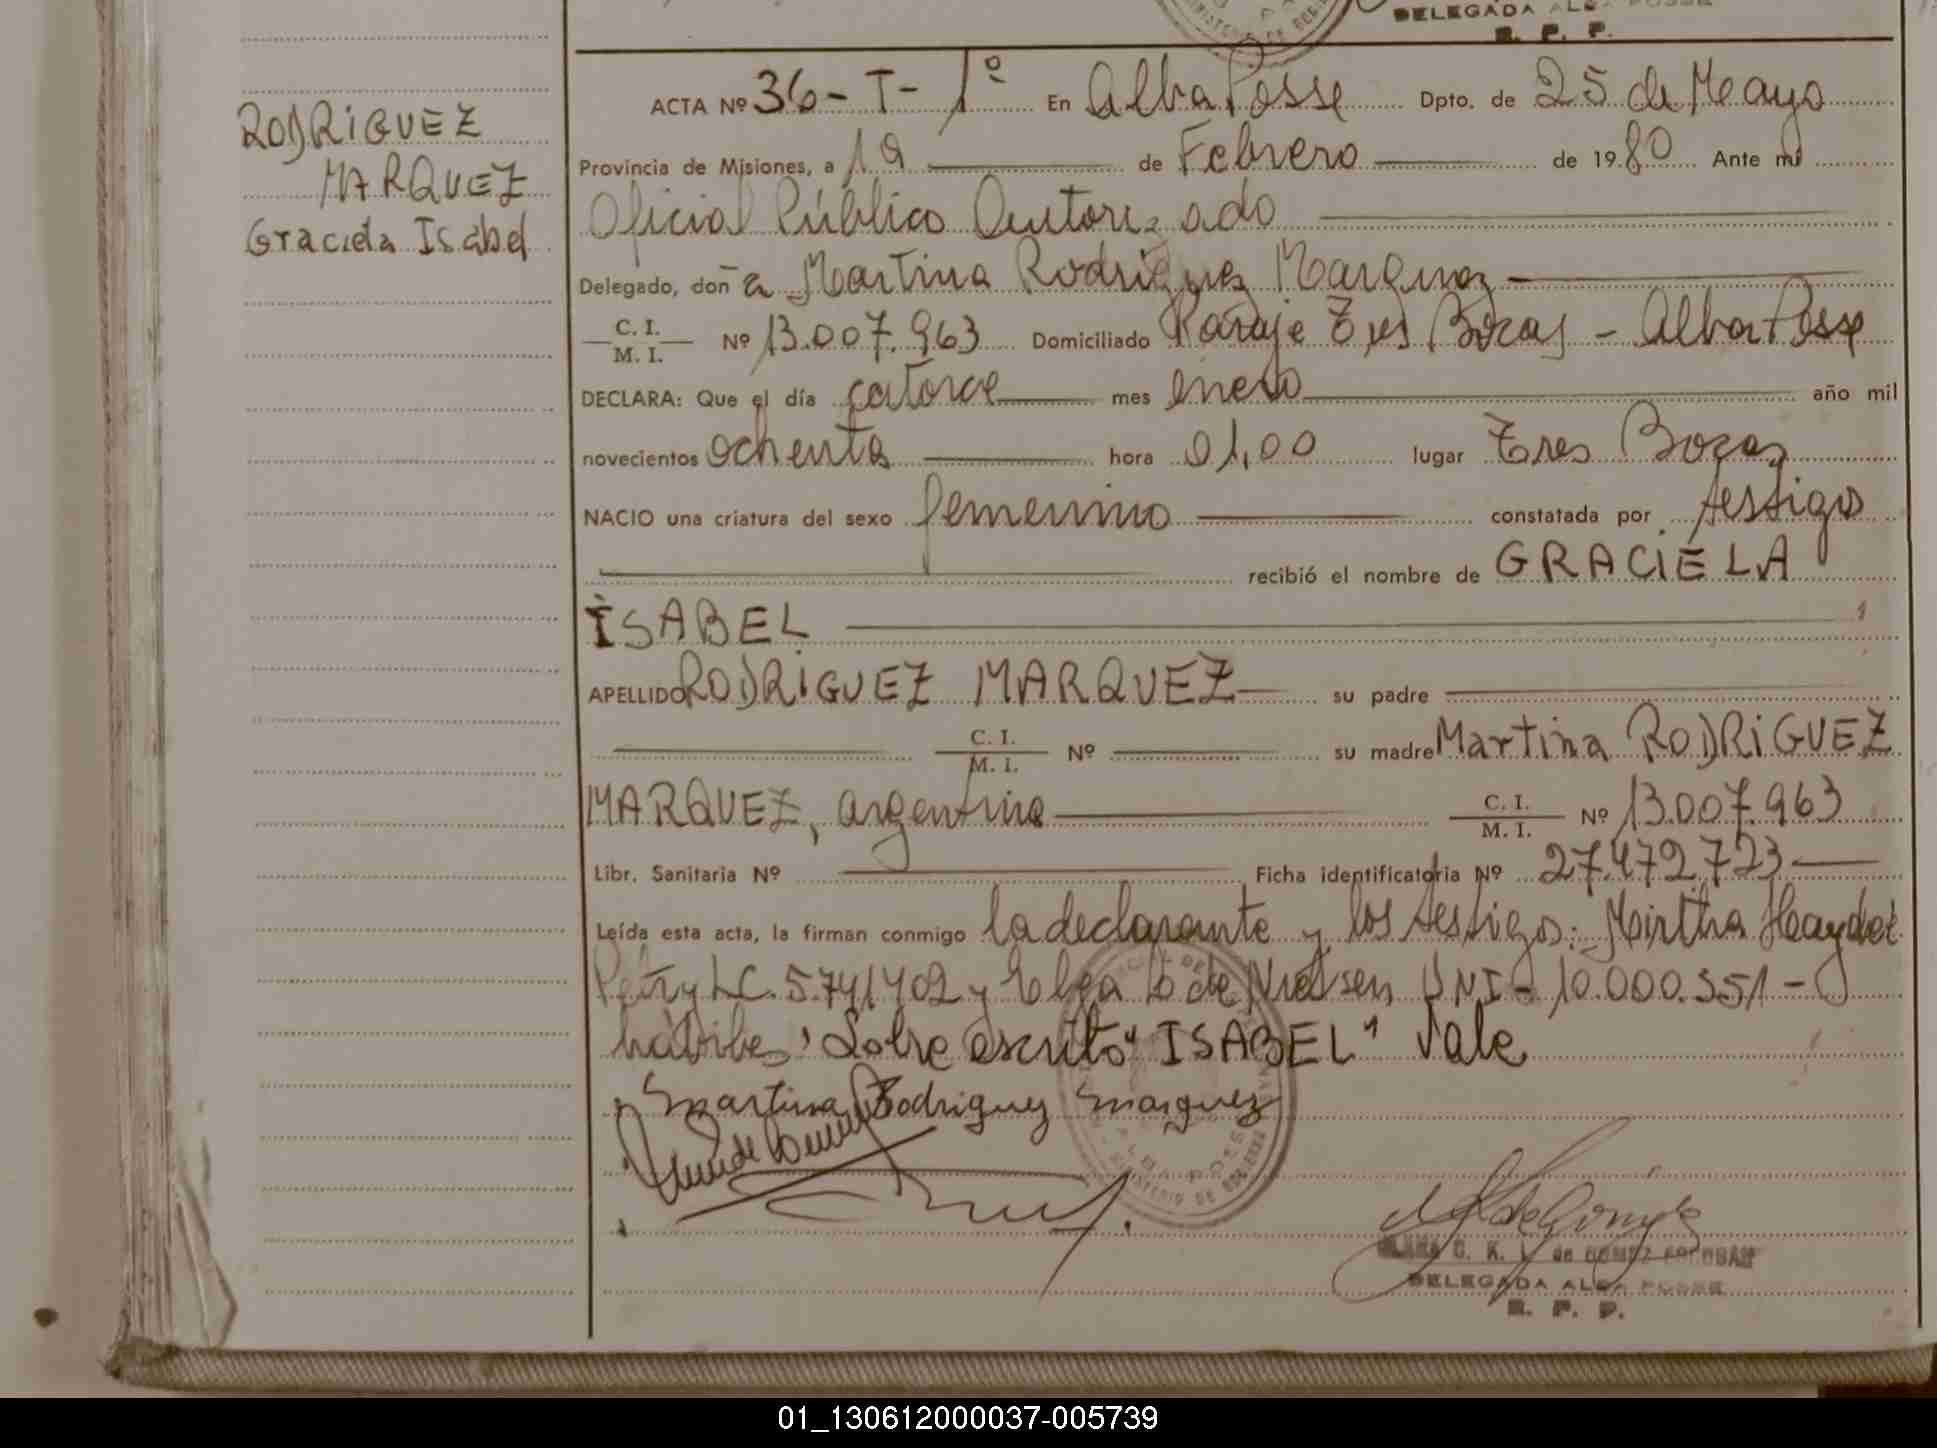 DELEGADA ALBA POSSE
R. P. P.
RODRIGUEZ
MARQUEZ
Graciela Isabel
ACTA Nº 36 - T - 1º En Alba Posse Dpto. de 25 de Mayo
Provincia de Misiones, a 19 de Febrero de 1980 Ante mí
Oficial Público Autorizado
Delegado, doña Martina Rodriguez Marquez
C. I.
M. I. Nº 13.007.963 Domiciliado Paraje Tres Bocas - Alba Posse
DECLARA: Que el día catorce mes enero año mil
novecientos ochenta hora 01,00 lugar Tres Bocas
NACIO una criatura del sexo femenino constatada por testigo
recibió el nombre de GRACIELA
ISABEL
APELLIDO RODRIGUEZ MARQUEZ su padre
C. I.
M. I. Nº su madre Martina RODRIGUEZ
MARQUEZ, argentina C. I.
M. I. Nº 13.007.963
Libr. Sanitaria Nº Ficha identificatoria Nº 27.472.723
Leída esta acta, la firman conmigo la declarante y los testigos: Mirtha Haydeé
Petry LC. 5.741.402 y Elga de Nielsen DNI - 10.000.351 -
hábiles, Sobre escrito "ISABEL" Vale
Martina Rodriguez Marquez
de GOMEZ ESCOBAR
DELEGADA ALBA POSSE
R. P. P.
01_130612000037-005739